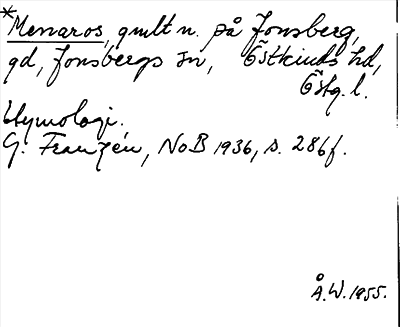 *
Menaros, gmlt n. på Jonsberg,
gd, Jonsbergs sn, Östkinds hd,
Östg. l.
Etymologi.
G. Franzén, NoB 1936, s. 286f.
Å.W. 1955.